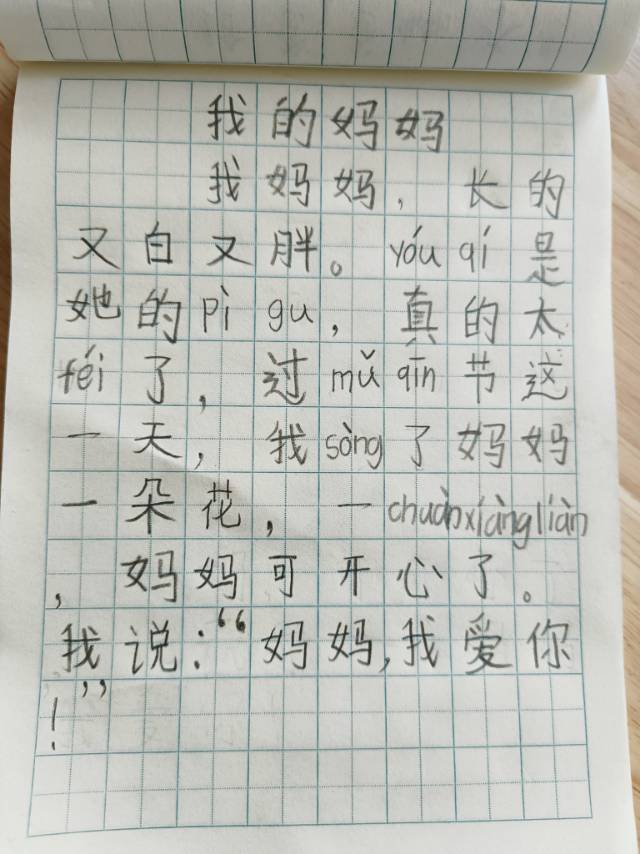 我的妈妈
我妈妈，长的
又白又胖。yóu qí 是
她的pì gu，真的太
féi了，过mǔ qīn节这
一天，我sòng了妈妈
一朵花，一chuàn xiàng liàn
，妈妈可开心了。
我说：“妈妈,我爱你
！”